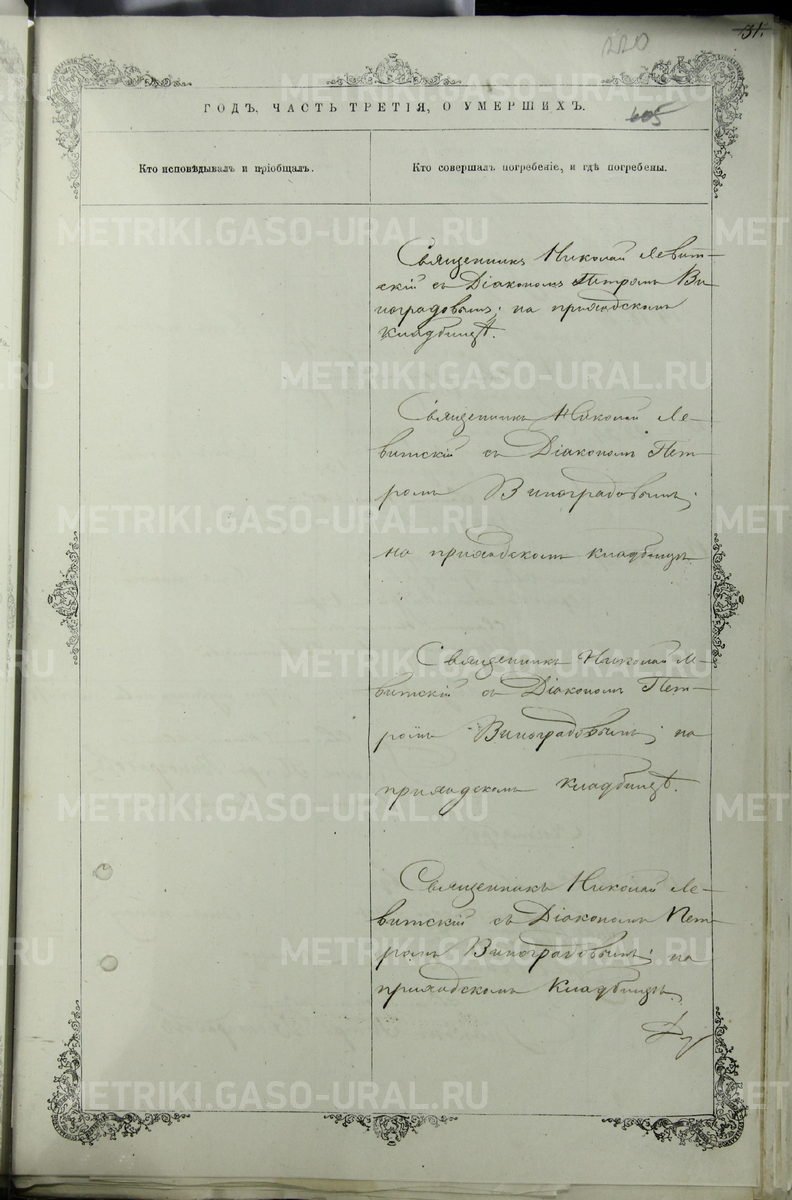 31.
220
ГОДЪ, ЧАСТЬ ТРЕТІЯ, О УМЕРШИХЪ.
605
Кто исповѣдывалъ и пріобщалъ.
Кто совершалъ погребеніе, и гдѣ погребены.
Священникъ Николай Левит-
скій съ Діакономъ Петромъ Ви-
ноградовымъ; на приходскомъ
кладбищѣ.
Священникъ Николай Ле-
витскій съ Діакономъ Пет-
ромъ Виноградовымъ;
на приходскомъ кладбищѣ
Священникъ Николай Ле-
витскій съ Діакономъ Пет-
ромъ Виноградовымъ; на
приходскомъ кладбищѣ.
Священникъ Николай Ле-
витскій съ Діакономъ Пет-
ромъ Виноградовымъ; на
приходскомъ кладбищѣ.
METRIKI.GASO-URAL.RU